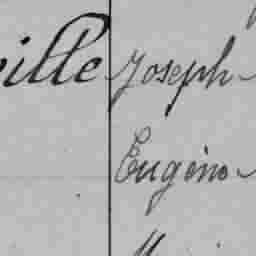 ille Joseph
Eugène